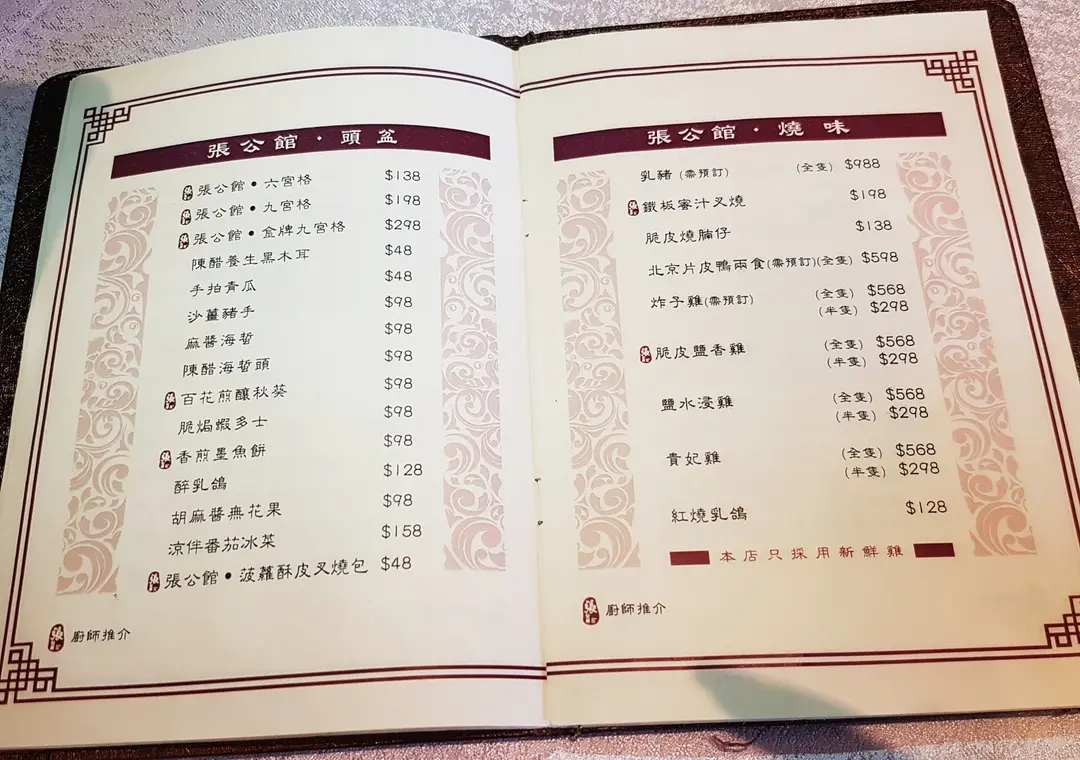 張公館·頭盆
張公館•六宮格 $138
張公館•九宮格 $198
張公館•金牌九宮格 $298
陳醋養生黑木耳 $48
手拍青瓜 $48
沙薑豬手 $98
麻醬海蜇 $98
陳醋海蜇頭 $98
百花煎釀秋葵 $98
脆焗蝦多士 $98
香煎墨魚餅 $98
醉乳鴿 $128
胡麻醬無花果 $98
涼伴番茄冰菜 $158
張公館•菠蘿酥皮叉燒包 $48
廚師推介
張公館·燒味
乳豬(需預訂) (全隻) $988
鐵板蜜汁叉燒 $198
脆皮燒腩仔 $138
北京片皮鴨兩食(需預訂)(全隻) $598
炸子雞(需預訂) (全隻) $568
(半隻) $298
脆皮鹽香雞 (全隻) $568
(半隻) $298
鹽水浸雞 (全隻) $568
(半隻) $298
貴妃雞 (全隻) $568
(半隻) $298
紅燒乳鴿 $128
本店只採用新鮮雞
張 廚師推介